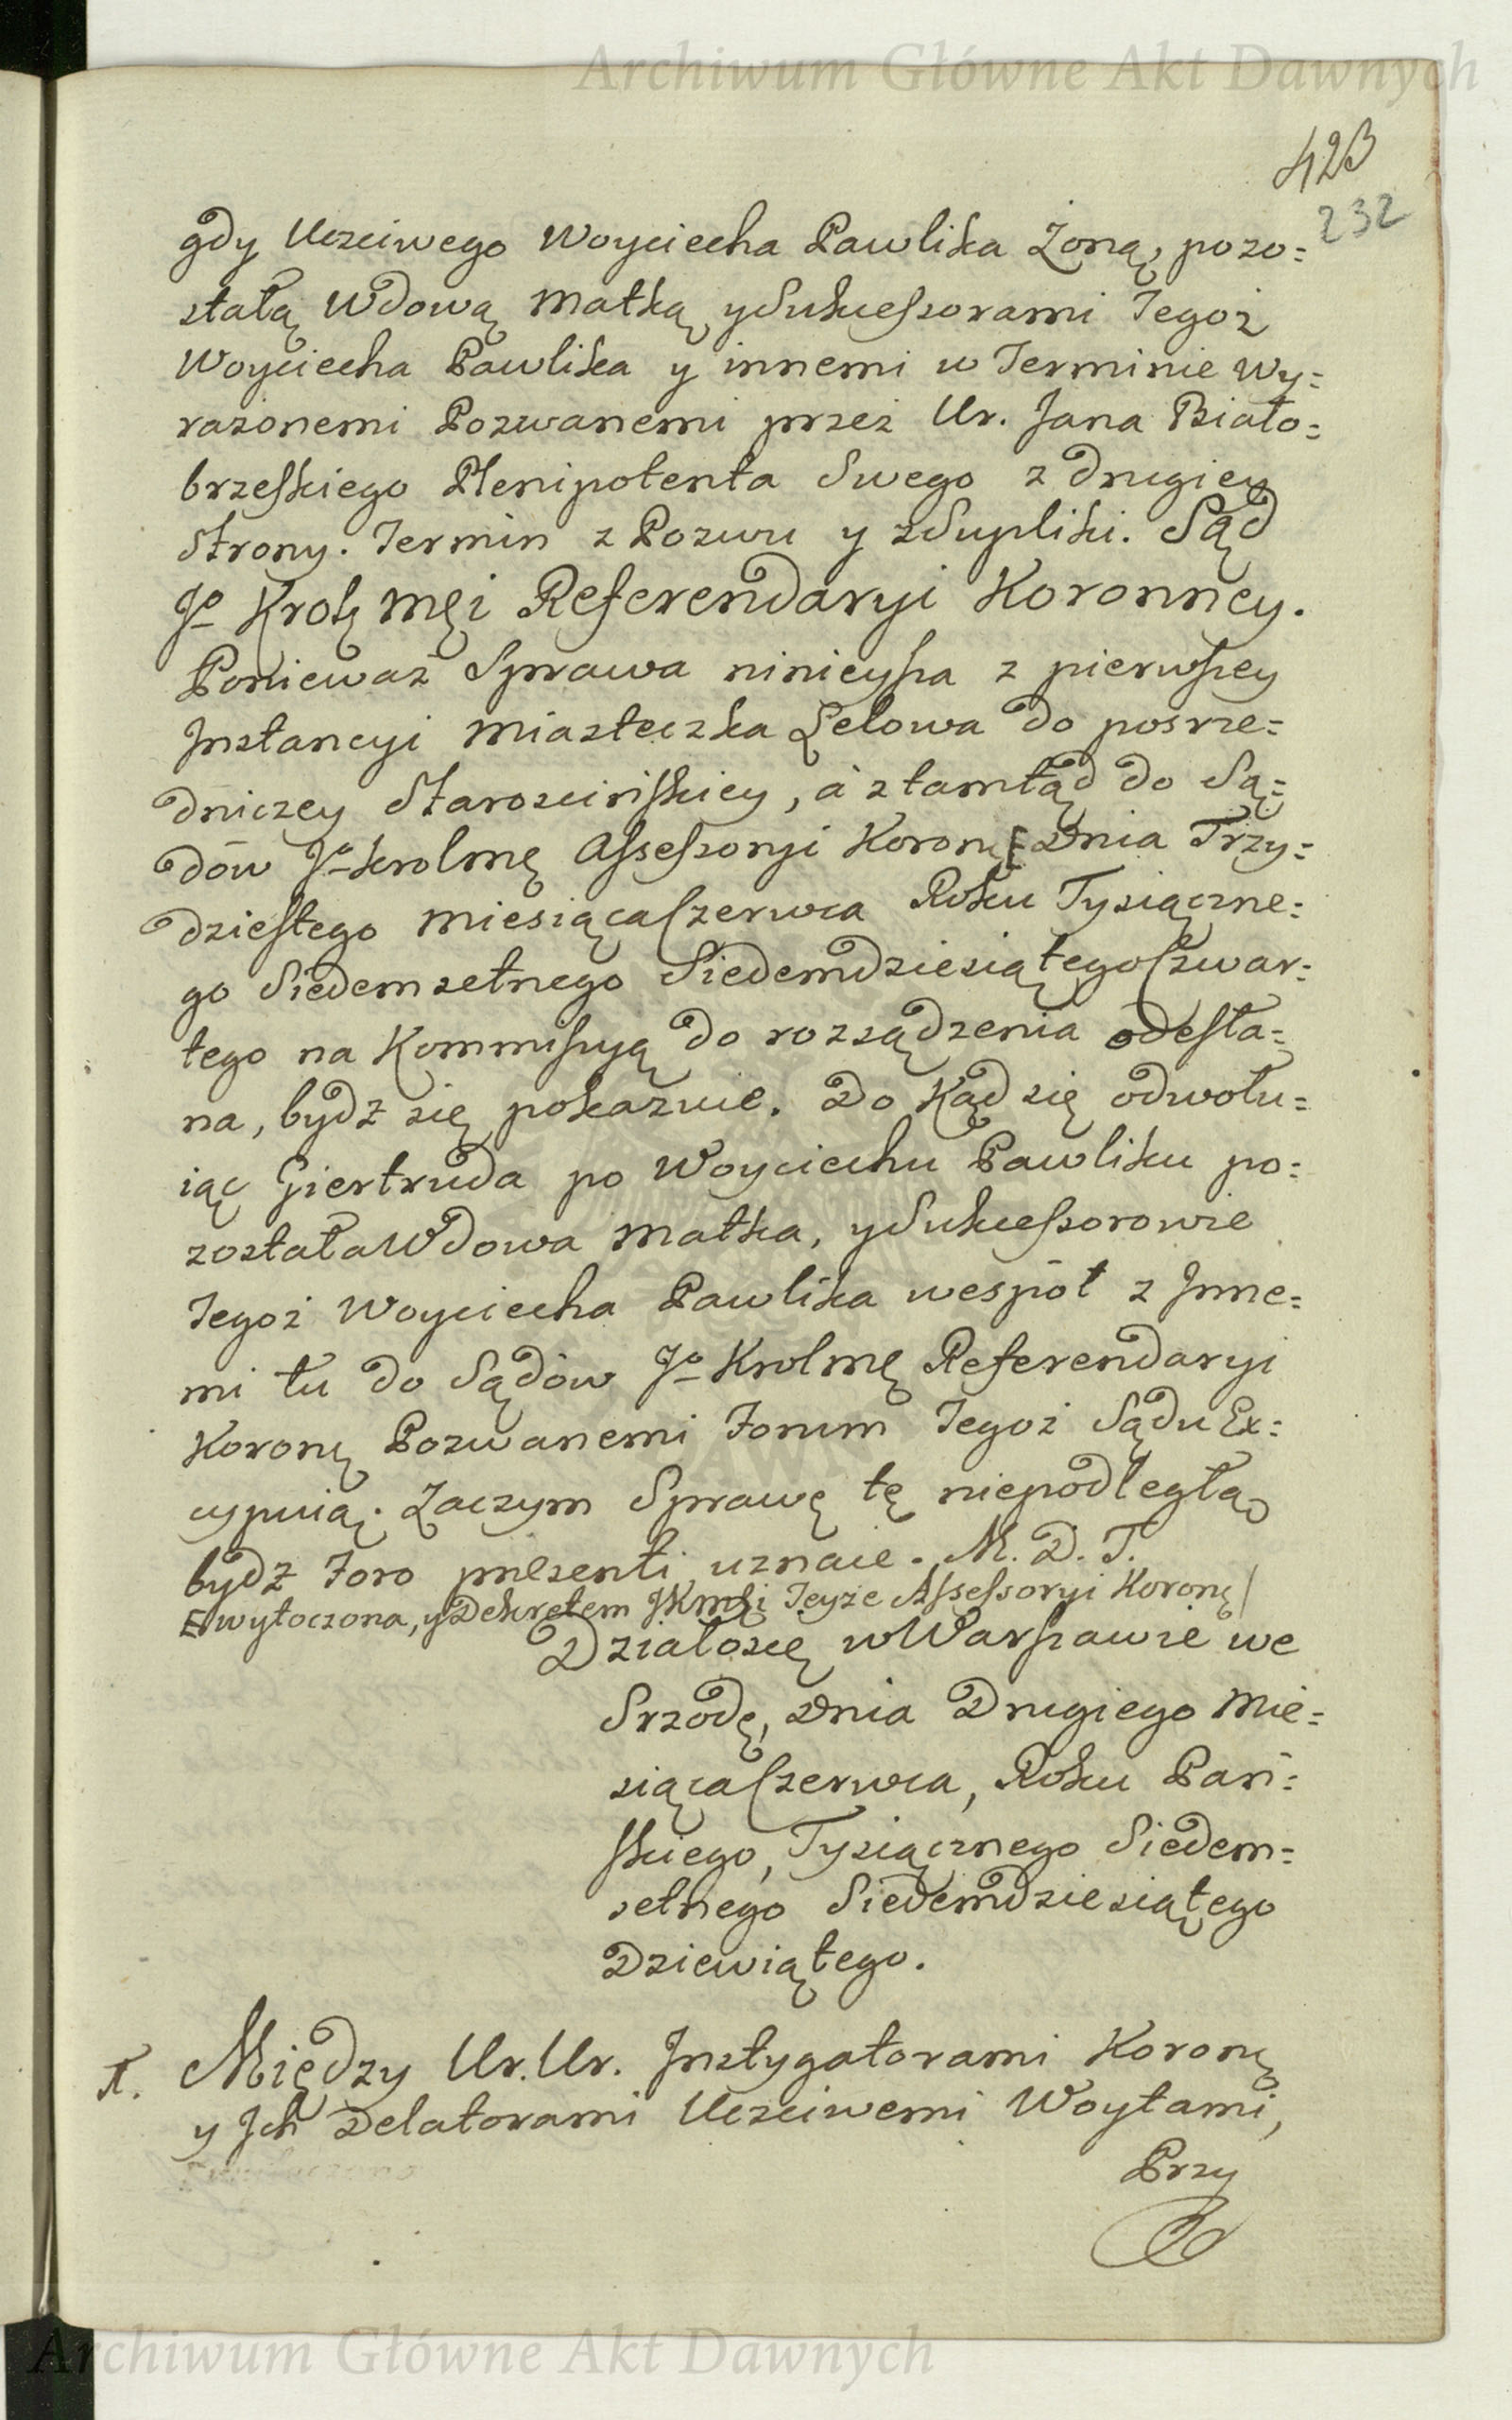 Archiwum Główne Akt Dawnych
423
232
gdy Uczciwego Woyciecha Pawlika Żoną, pozo=
stałą Wdową Matką y Sukcessorami Tegoż
Woyciecha Pawlika y innemi w Terminie Wy=
rażonemi Pozwanemi przez Ur. Jana Biało=
brzeskiego Plenipotenta Swego z drugiey
Strony. Termin z Pozwu y z Supliki. Sąd
Jo Krolę Męi Referendaryi Koronney.
Ponieważ Sprawa ninieysza z pierwszey
Instancyi Miasteczka Lelowa do posrze=
dniczey Staroscińskiey, á ztamtąd do Są=
dów Jo Krolmę Assessoryi Koronę [ Dnia Trzy=
dziestego Miesiąca Czerwca Roku Tysiączne=
go Siedemsetnego Siedemdziesiątego Czwar=
tego na Kommissyą do rozsądzenia odesła=
na, bydz się pokazuie. Do Kąd się odwołu=
iąc Giertruda po Woyciechu Pawliku po=
została Wdowa Matka, y Sukcessorowie
Tegoż Woyciecha Pawlika wespół z Inne=
mi tu do Sądów Jo Krolmę Referendaryi
Koronę Pozwanemi Forum Tegoż Sądu Ex=
cypuią. Zaczym Sprawę tę niepodległą
bydz Foro præsenti uznaie. M. D. T.
[ wytoczona, y Dekretem JKmści Teyże Assessoryi Koronę /
Działosię w Warszawie we
Srzodę, Dnia Drugiego Mie=
siąca Czerwca, Roku Pań=
skiego, Tysiącznego Siedem=
setnego Siedemdziesiątego
Dziewiątego.
Między Ur. Ur. Instygatorami Koronę
y Ich Delatorami Uczciwemi Woytami,
Przy
Archiwum Główne Akt Dawnych